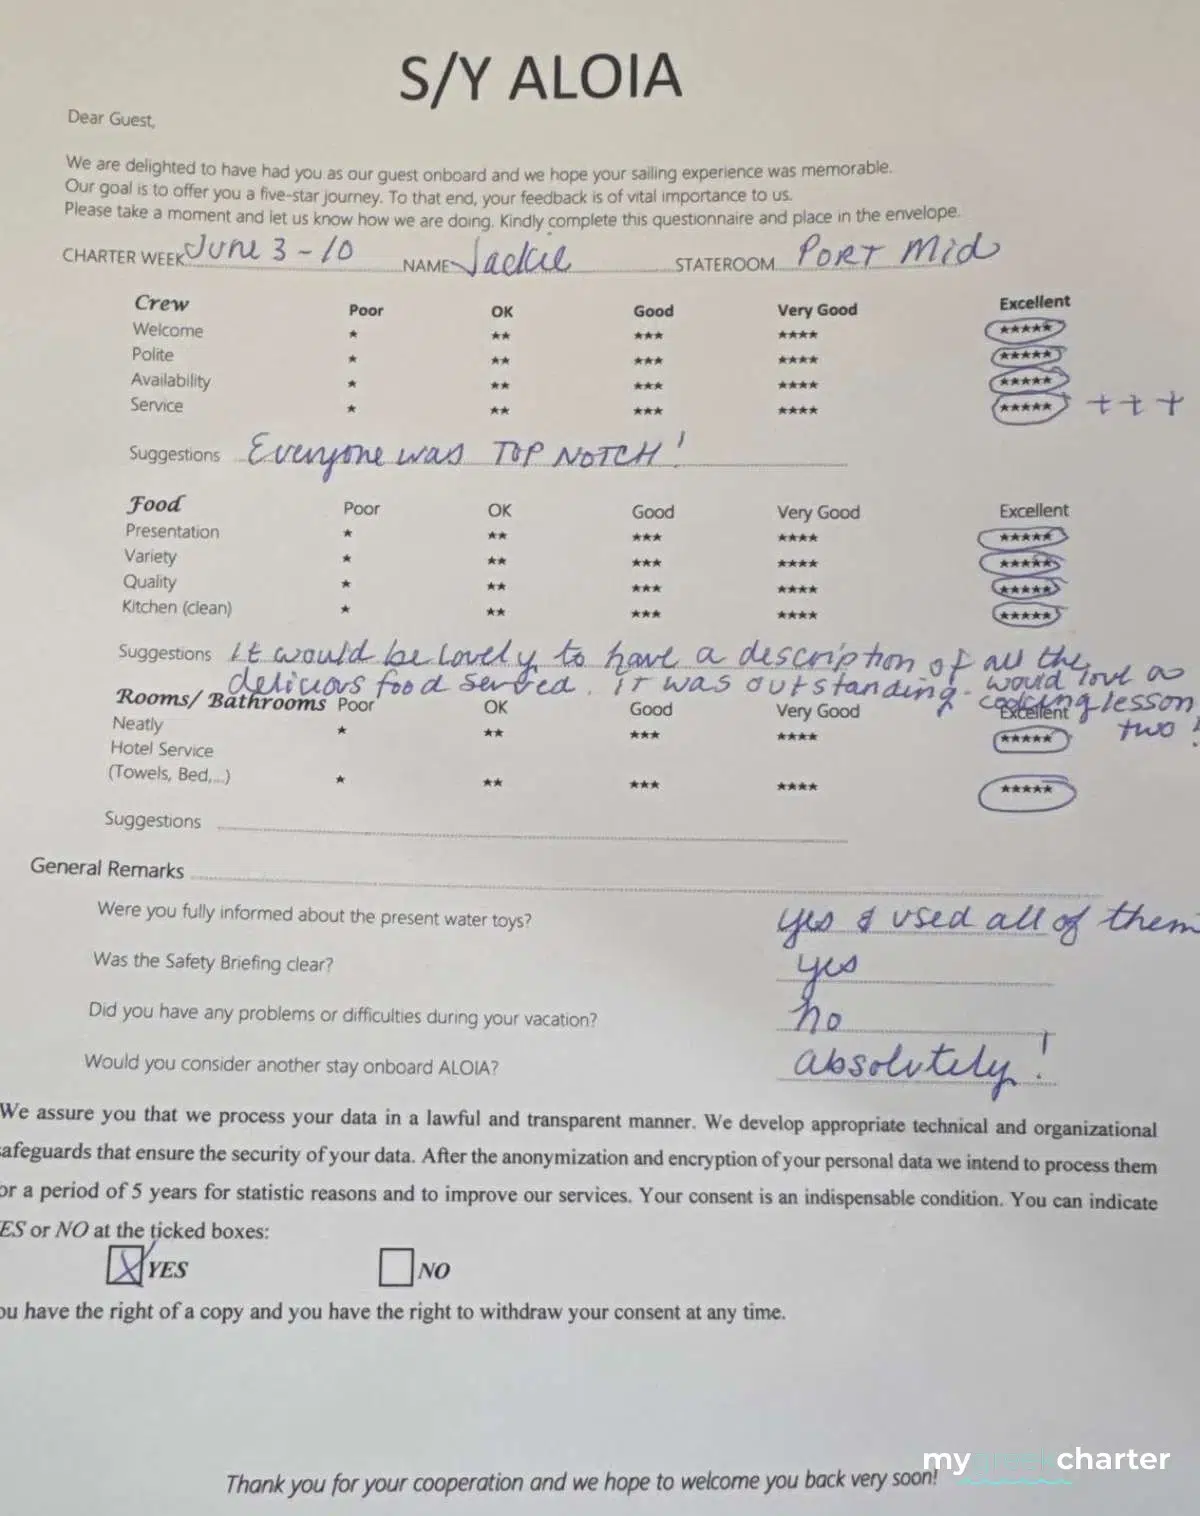 S/Y ALOIA
Dear Guest,
We are delighted to have had you as our guest onboard and we hope your sailing experience was memorable.
Our goal is to offer you a five-star journey. To that end, your feedback is of vital importance to us.
Please take a moment and let us know how we are doing. Kindly complete this questionnaire and place in the envelope.
CHARTER WEEK June 3 - 10 NAME Jackie STATEROOM PORT Mid
Crew Poor OK Good Very Good Excellent
Welcome ★ ★★ ★★★ ★★★★ ★★★★★
Polite ★ ★★ ★★★ ★★★★ ★★★★★
Availability ★ ★★ ★★★ ★★★★ ★★★★★
Service ★ ★★ ★★★ ★★★★ ★★★★★ +++
Suggestions Everyone was TOP NOTCH!
Food Poor OK Good Very Good Excellent
Presentation ★ ★★ ★★★ ★★★★ ★★★★★
Variety ★ ★★ ★★★ ★★★★ ★★★★★
Quality ★ ★★ ★★★ ★★★★ ★★★★★
Kitchen (clean) ★ ★★ ★★★ ★★★★ ★★★★★
Suggestions It would be lovely to have a description of all the
delicious food served. It was outstanding. would love a
cooking lesson
two!
Rooms/ Bathrooms Poor OK Good Very Good Excellent
Neatly ★ ★★ ★★★ ★★★★ ★★★★★
Hotel Service
(Towels, Bed,...) ★ ★★ ★★★ ★★★★ ★★★★★
Suggestions
General Remarks
Were you fully informed about the present water toys? yes & used all of them
Was the Safety Briefing clear? yes
Did you have any problems or difficulties during your vacation? no
Would you consider another stay onboard ALOIA? absolutely!
We assure you that we process your data in a lawful and transparent manner. We develop appropriate technical and organizational
afeguards that ensure the security of your data. After the anonymization and encryption of your personal data we intend to process them
or a period of 5 years for statistic reasons and to improve our services. Your consent is an indispensable condition. You can indicate
ES or NO at the ticked boxes:
YES NO
ou have the right of a copy and you have the right to withdraw your consent at any time.
mygreekcharter
Thank you for your cooperation and we hope to welcome you back very soon!